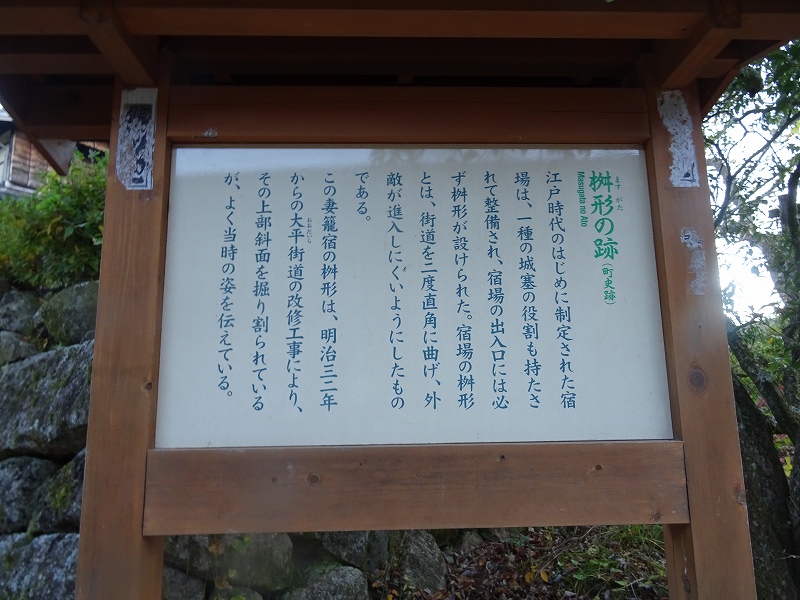 桝形の跡(町史跡)
ますがた
Masugata no Ato
江戸時代のはじめに制定された宿
場は、一種の城塞の役割も持たさ
れて整備され、宿場の出入口には必
ず桝形が設けられた。宿場の桝形
とは、街道を二度直角に曲げ、外
敵が進入しにくいようにしたもの
である。
この妻籠宿の桝形は、明治三二年
からの大平街道の改修工事により、
おおだいら
その上部斜面を掘り割られている
が、よく当時の姿を伝えている。